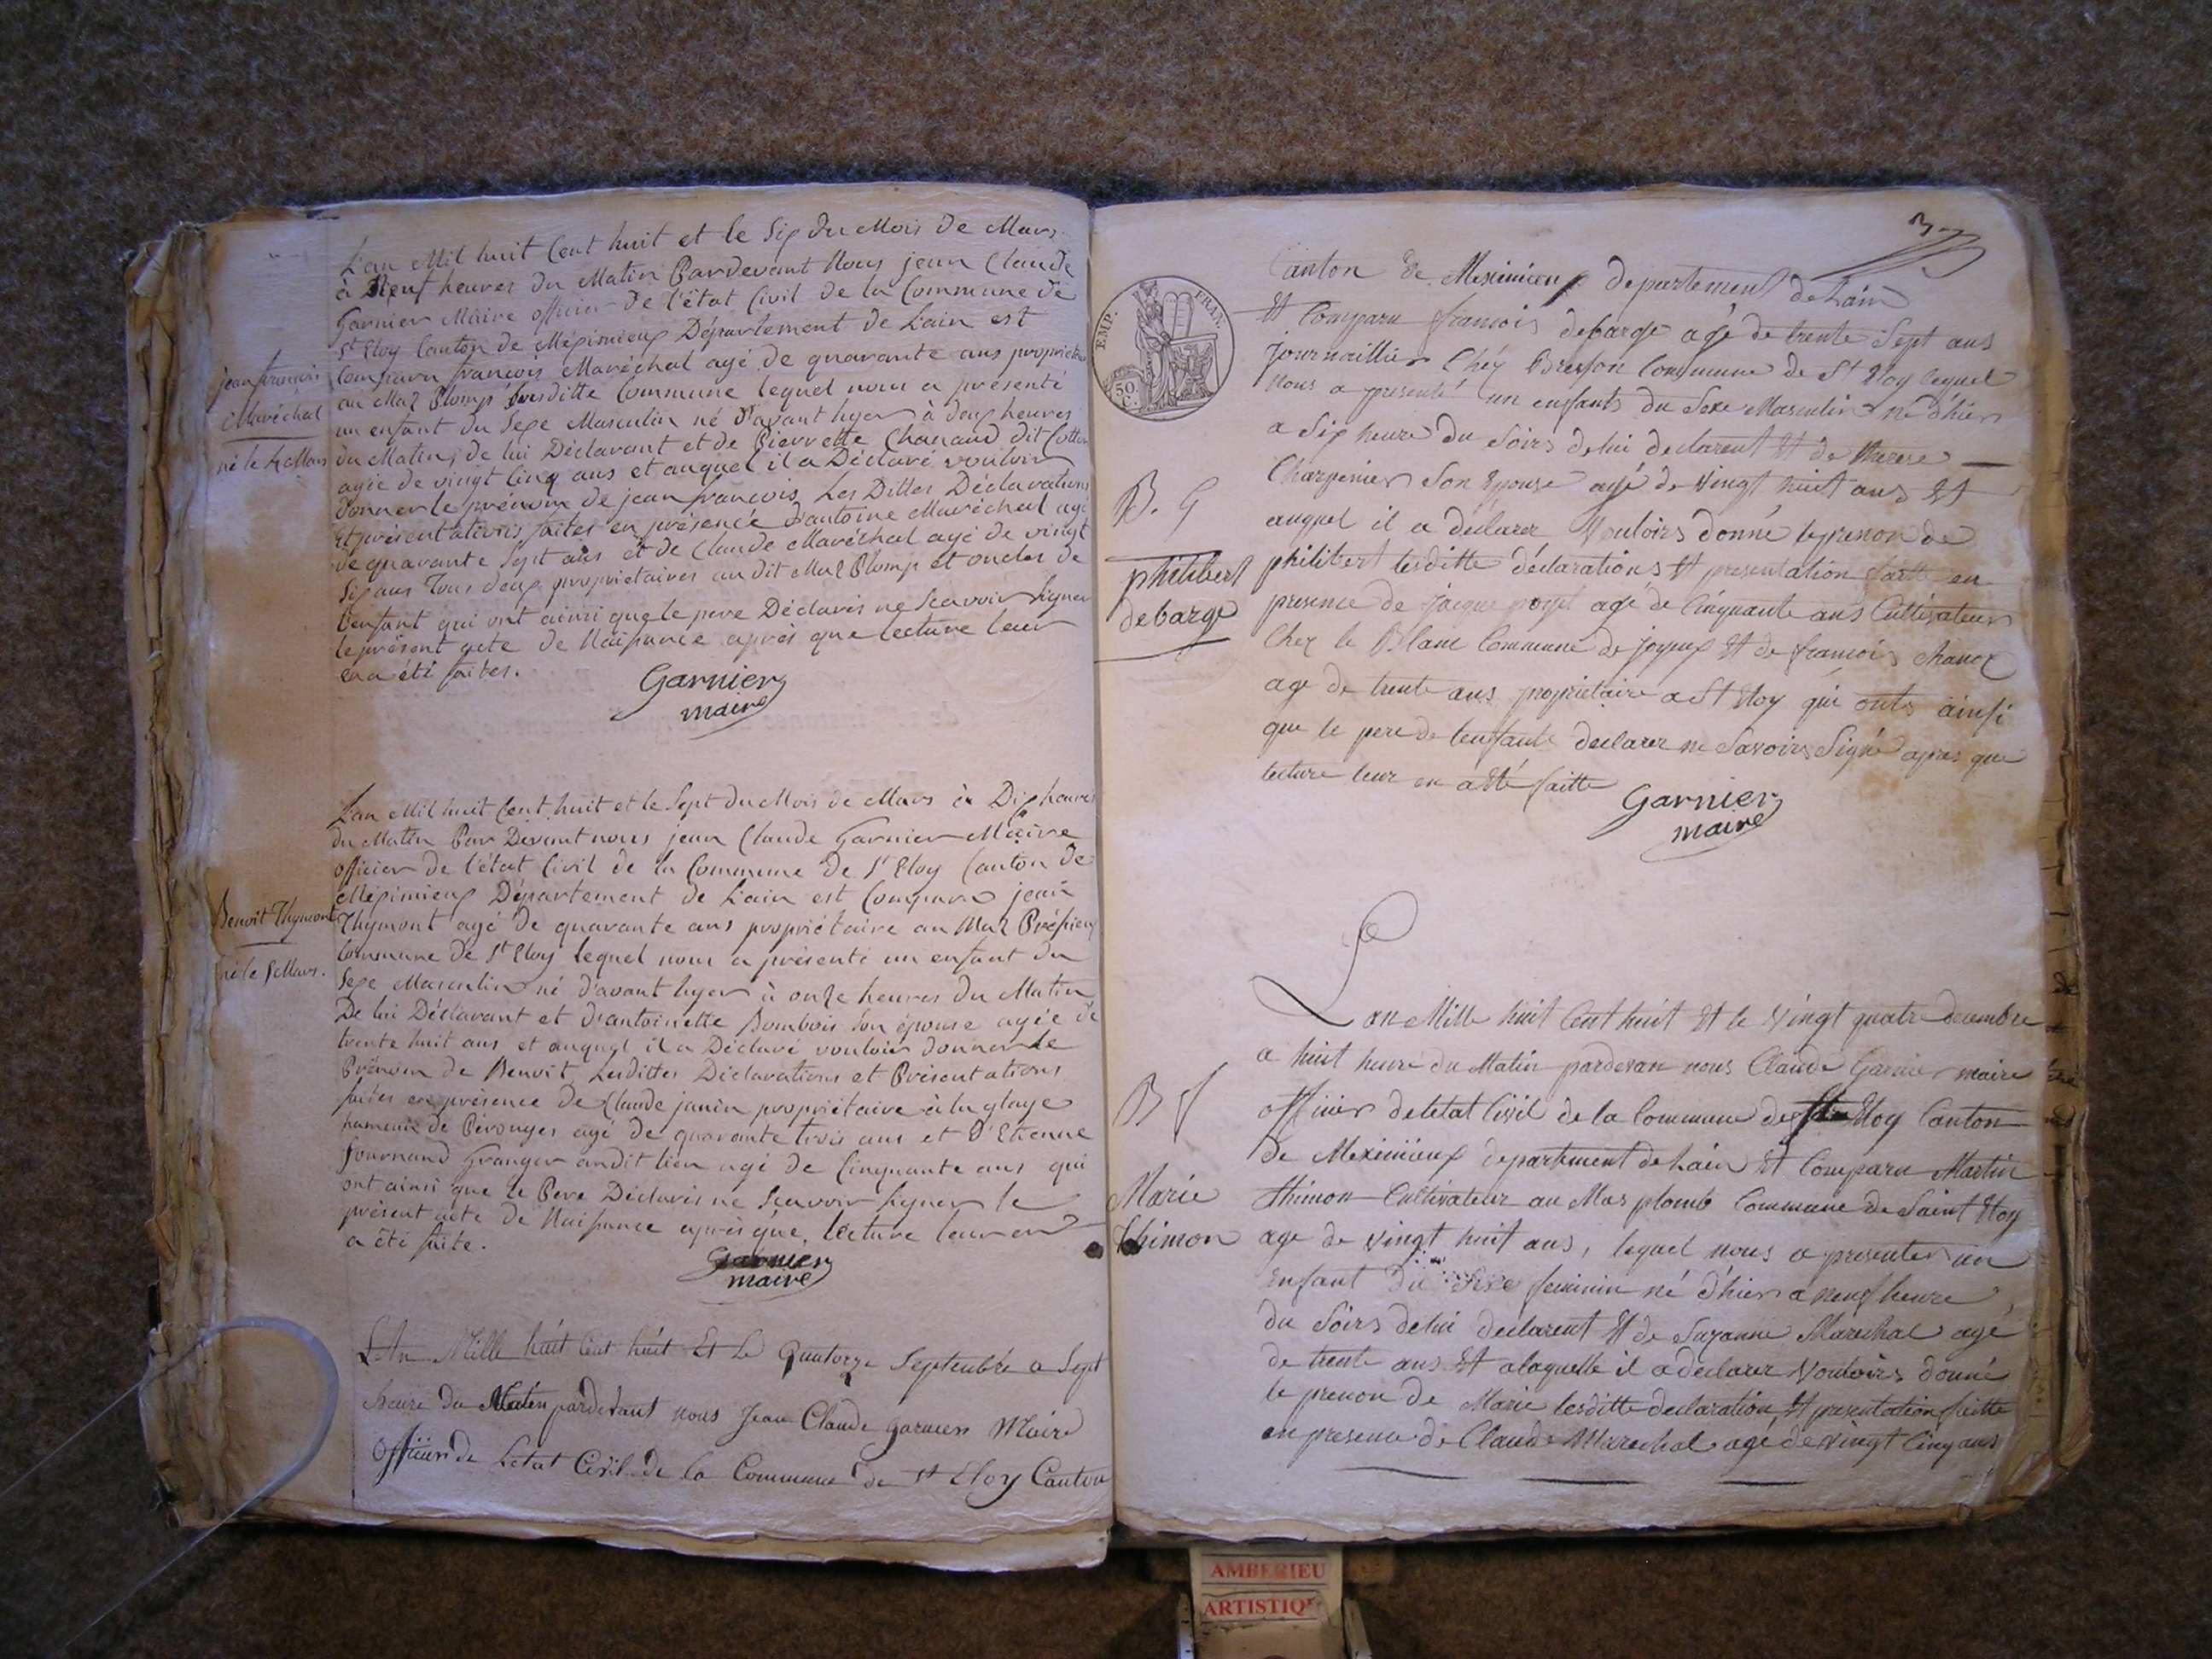 L'an Mil huit Cent huit et le Six du Mois de Mars
à Neuf heures du Matin Pardevant Nous jean Claude
Garnier Maire officier de l'état Civil de la Commune de
St Eloy Canton de Méximieux Département de L'ain est
Comparu françois Maréchal agé de quarante ans propriétaire
au Maz Plomp susditte Commune lequel nous a présenté
un enfant du Sexe Masculin né d'avant hyer à deux heures
du Matin, de lui Déclarant et de Pierrette Chanaud dit
agée de vingt Cinq ans et auquel il a Déclaré vouloir
Donner le prénom de jean françois, Les Dittes Déclarations
Et présentations faites en présence d'antoine Maréchal agé
de quarante Sept ans et de Claude Maréchal agé de vingt
Six ans Tous deux propriétaires au dit Maz Plomp et oncles de
l'enfant qui ont ainsi que le pere Déclarés ne Scavoir Signer
le présent acte de Naissance après que lecture leur
en a été faites.
Garnier
maire
jean françois
Maréchal
né le 4 Mars
L'an Mil huit Cent huit et le Sept du Mois de Mars à Dix heures
du Matin Par Devant nous jean Claude Garnier Maire
officier de l'état Civil de la Commune de St Eloy Canton de
Méximieux Département de L'ain est Comparu jean
Thymont agé de quarante ans propriétaire au Maz
Commune de St Eloy lequel nous a présenté un enfant du
Sexe Masculin né d'avant hyer à onze heures du Matin
De lui Déclarant et d'antoinette Bombois son épouse agée de
trente huit ans et auquel il a Déclaré vouloir donner le
Prénom de Benoit, Lesdittes Déclarations et Présentations
faites en présence de Claude janin propriétaire à la glaye
hameau de Pérouges agé de quarante trois ans et d'Etienne
fournand Granger audit lieu agé de Cinquante ans qui
ont ainsi que le Pere Déclarés ne Scavoir signer le
présent acte de Naissance après que lecture leur en
a été faite.
Garnier
maire
Benoit Thymont
né le 5 Mars.
L'An Mille huit Cent huit Et Le Quatorze Septembre a Sept
heure du Maten pardevant nous Jean Claude garnier Maire
officier de Letat Civil de la Commune de St Eloy Canton
3
EMP. FRAN.
50 C.
Canton de Meximieux departement de Lain
Et Comparu francois debarge agé de trente Sept ans
journaillier Chéz Bresson Commune de St Eloy lequel
nous a presenté un enfants du Sexe Masculin né d'hier
a Six heure du Soirs de lui declarent Et de
Chargenier Son Epouse agé de vingt huit ans Et
auquel il a déclarer vouloirs donné le prenon de
philibert lesditte déclarations Et presentation faitte en
presence de jacque poyet agé de Cinquante ans Cultivateur
Chez le Blanc Commune de joyeux Et de francois Chanoz
age de trente ans propriétaire a St Eloy qui onts ainsi
que le pere de l'enfants declarer ne Savoirs Signé apres que
lecture leur en a été faitte
Garnier
maire
B. 9
philibert
debarge
L'an Mille huit Cent huit Et le vingt quatre decembre
a huit heure du Matin pardevan nous Claude Garnier maire
officier de letat Civil de la Commune de St Eloy Canton
de Meximieux departement de Lain Et Comparu Martin
thimon Cultivateur au Mas plomb Commune de Saint Eloy
age de vingt huit ans, lequel nous a presenter un
enfant du Sexe feminin né d'hier a neuf heure
du Soirs de lui declarent Et de Suzanne Marechal agé
de trente ans Et a laquelle il a declarer vouloirs donné
le prenon de Marie lesditte declaration, Et presentation faitte
en presence de Claude Marechal age de vingt Cinq ans
B
Marie
thimon
AMBERIEU
ARTISTIQ